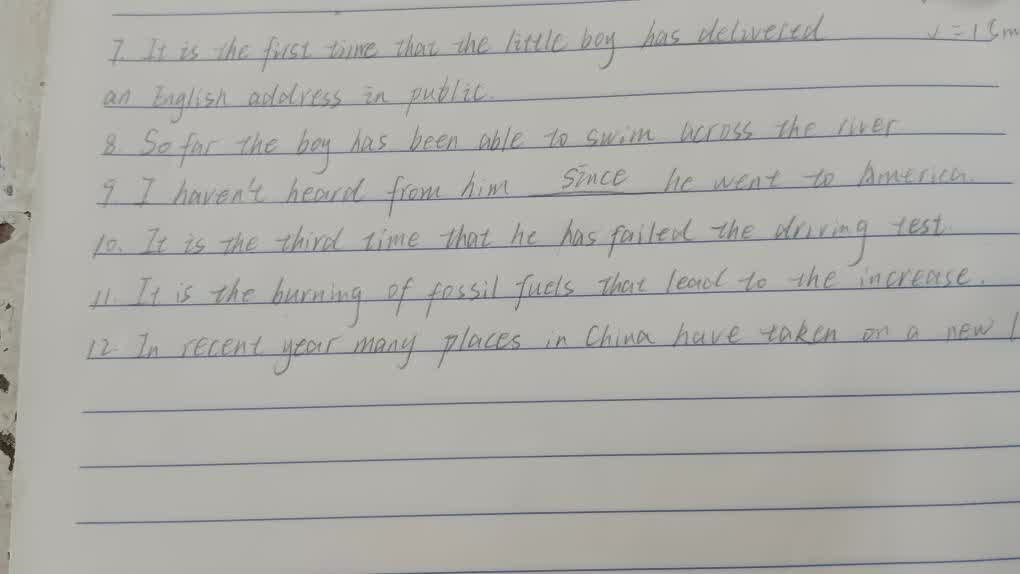 7. It is the first time that the little boy has delivered
an English address in public.
8. So far the boy has been able to swim across the river
9. I haven't heard from him since he went to America.
10. It is the third time that he has failed the driving test.
11. It is the burning of fossil fuels that lead to the increase.
12. In recent year many places in China have taken on a new